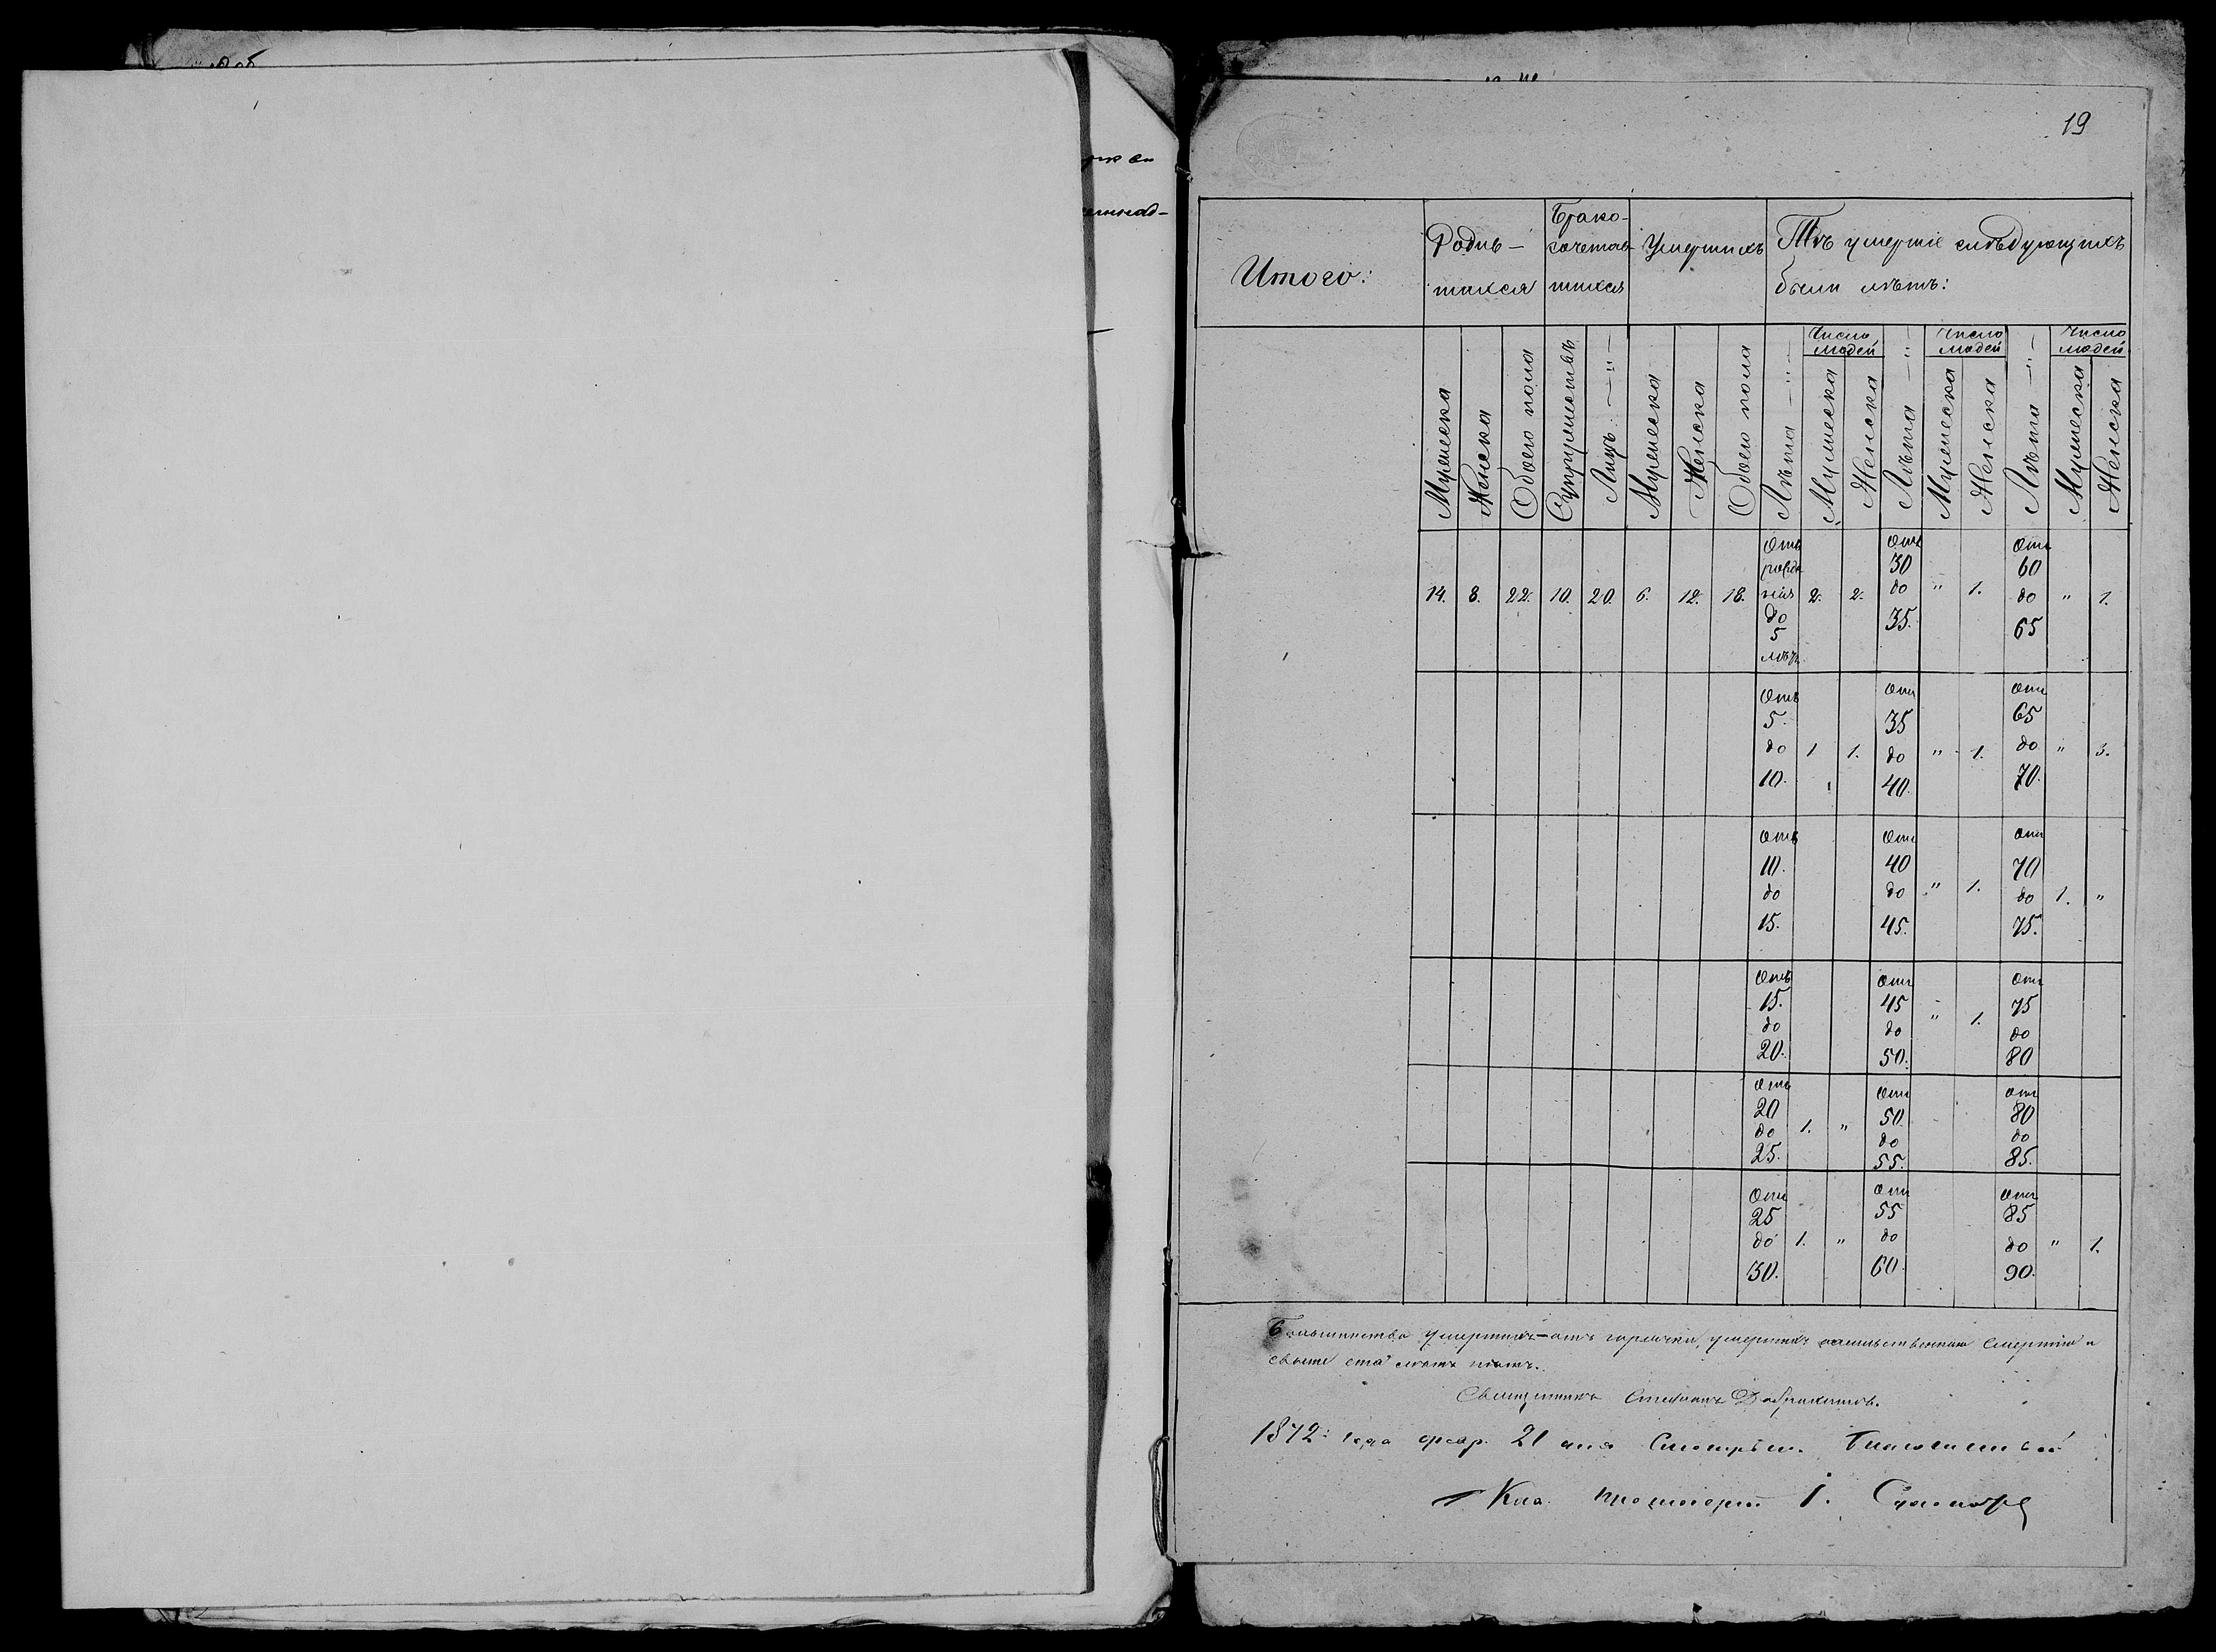 19
Итого:
Родив-
шихся
Брако-
сочетав-
шихся
Умершихъ
Тѣ умершіе слѣдующихъ
были лѣтъ:
Число людей
Число людей
Число людей
Мужеска Женска Обоего пола Супружествъ Лицъ Мужеска Женска Обоего пола Лѣта Мужеска Женска Лѣта Мужеска Женска Лѣта Мужеска Женска
14. 8. 22. 10. 20. 6. 12. 18. Отъ рожденія до 5 лѣтъ 2. 2. Отъ 30 до 35. " 1. Отъ 60 до 65 " 1.
Отъ 5. до 10. 1 1. Отъ 35 до 40. " 1. Отъ 65 до 70. " 3.
Отъ 10. до 15. Отъ 40 до 45. " 1. Отъ 70 до 75. 1. "
Отъ 15. до 20. Отъ 45 до 50. " 1. Отъ 75 до 80
Отъ 20 до 25. 1. " Отъ 50 до 55. Отъ 80 до 85.
Отъ 25 до 30. 1. " Отъ 55 до 60. Отъ 85 до 90. " 1.
Большинство умершихъ – отъ горячки, умершихъ насильственною смертію и
свыше ста лѣтъ нѣтъ.
Священникъ Стефанъ
1872 года февр. 21 дня Смотрѣлъ Благочинный
І.